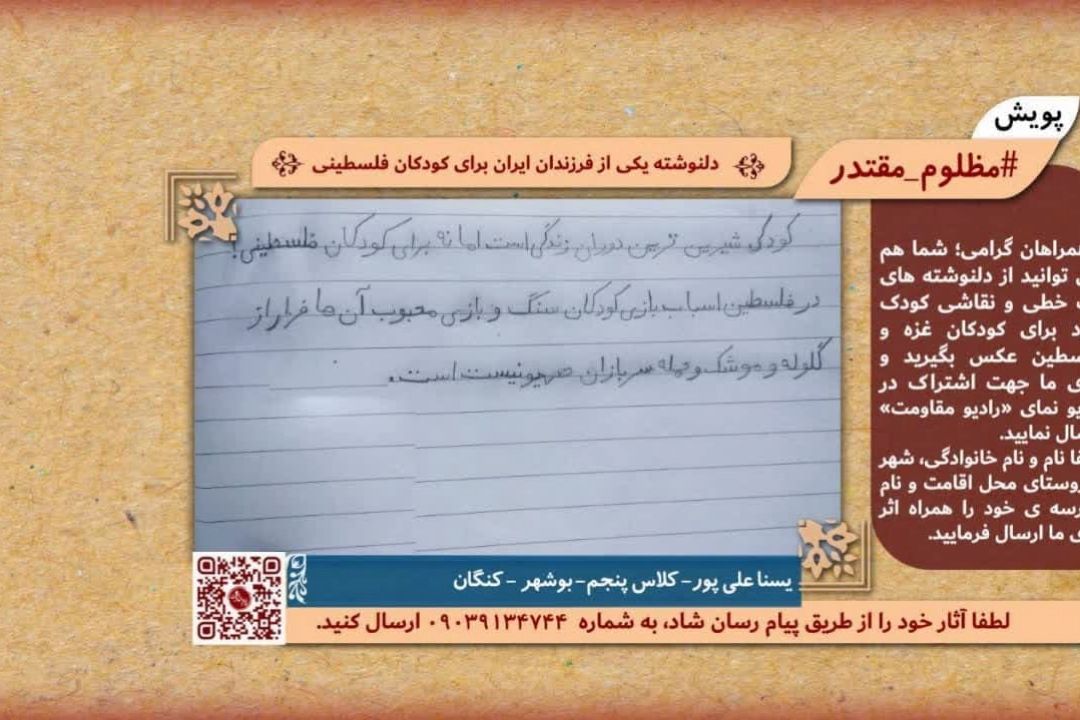 پویش
#مظلوم_مقتدر
دلنوشته یکی از فرزندان ایران برای کودکان فلسطینی
کودکی شیرین ترین دوران زندگی است اما نه برای کودکان فلسطینی!
در فلسطین اسباب بازی کودکان سنگ و بازی محبوب آن ها فرار از
گلوله و موشک و حمله سربازان صهیونیست است.
همراهان گرامی؛ شما هم
توانید از دلنوشته های
خطی و نقاشی کودک
برای کودکان غزه و
عکس بگیرید و
ما جهت اشتراک در
نمای «رادیو مقاومت»
نمایید.
نام و نام خانوادگی، شهر
روستای محل اقامت و نام
ی خود را همراه اثر
ما ارسال فرمایید.
یسنا علی پور- کلاس پنجم- بوشهر - کنگان
لطفا آثار خود را از طریق پیام رسان شاد، به شماره ۰۹۰۳۹۱۳۴۷۴۴ ارسال کنید.